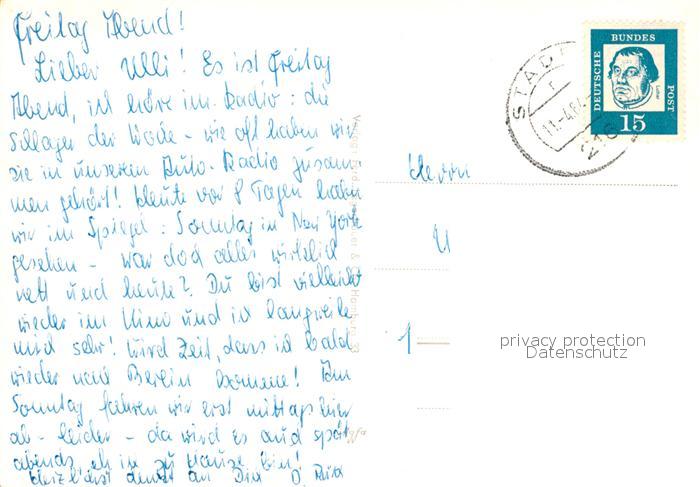 Freitag Abend!
Lieber Ulli! Es ist Freitag
Abend, ich höre im Radio: die
Schlager der Woche - wie oft haben wir
sie in unserem Auto-Radio zusam
men gehört! Heute vor 8 Tagen haben
wir im Spiegel: Sonntag in New York
gesehen - war doch alles wirklich
nett und heute? Du bist vielleicht
wieder im Kino und ich langweile
mich sehr! Wird Zeit, dass ich bald
wieder nach Berlin komme! Am
Sonntag fahren wir erst mittags hier
ab - leider - da wird es auch spät
abends, eh ich zu Hause bin!
Herzlichst denkt an Dich
DEUTSCHE BUNDES POST
Luther
15
STAD
216
Herrn
U
1
privacy protection
Datenschutz